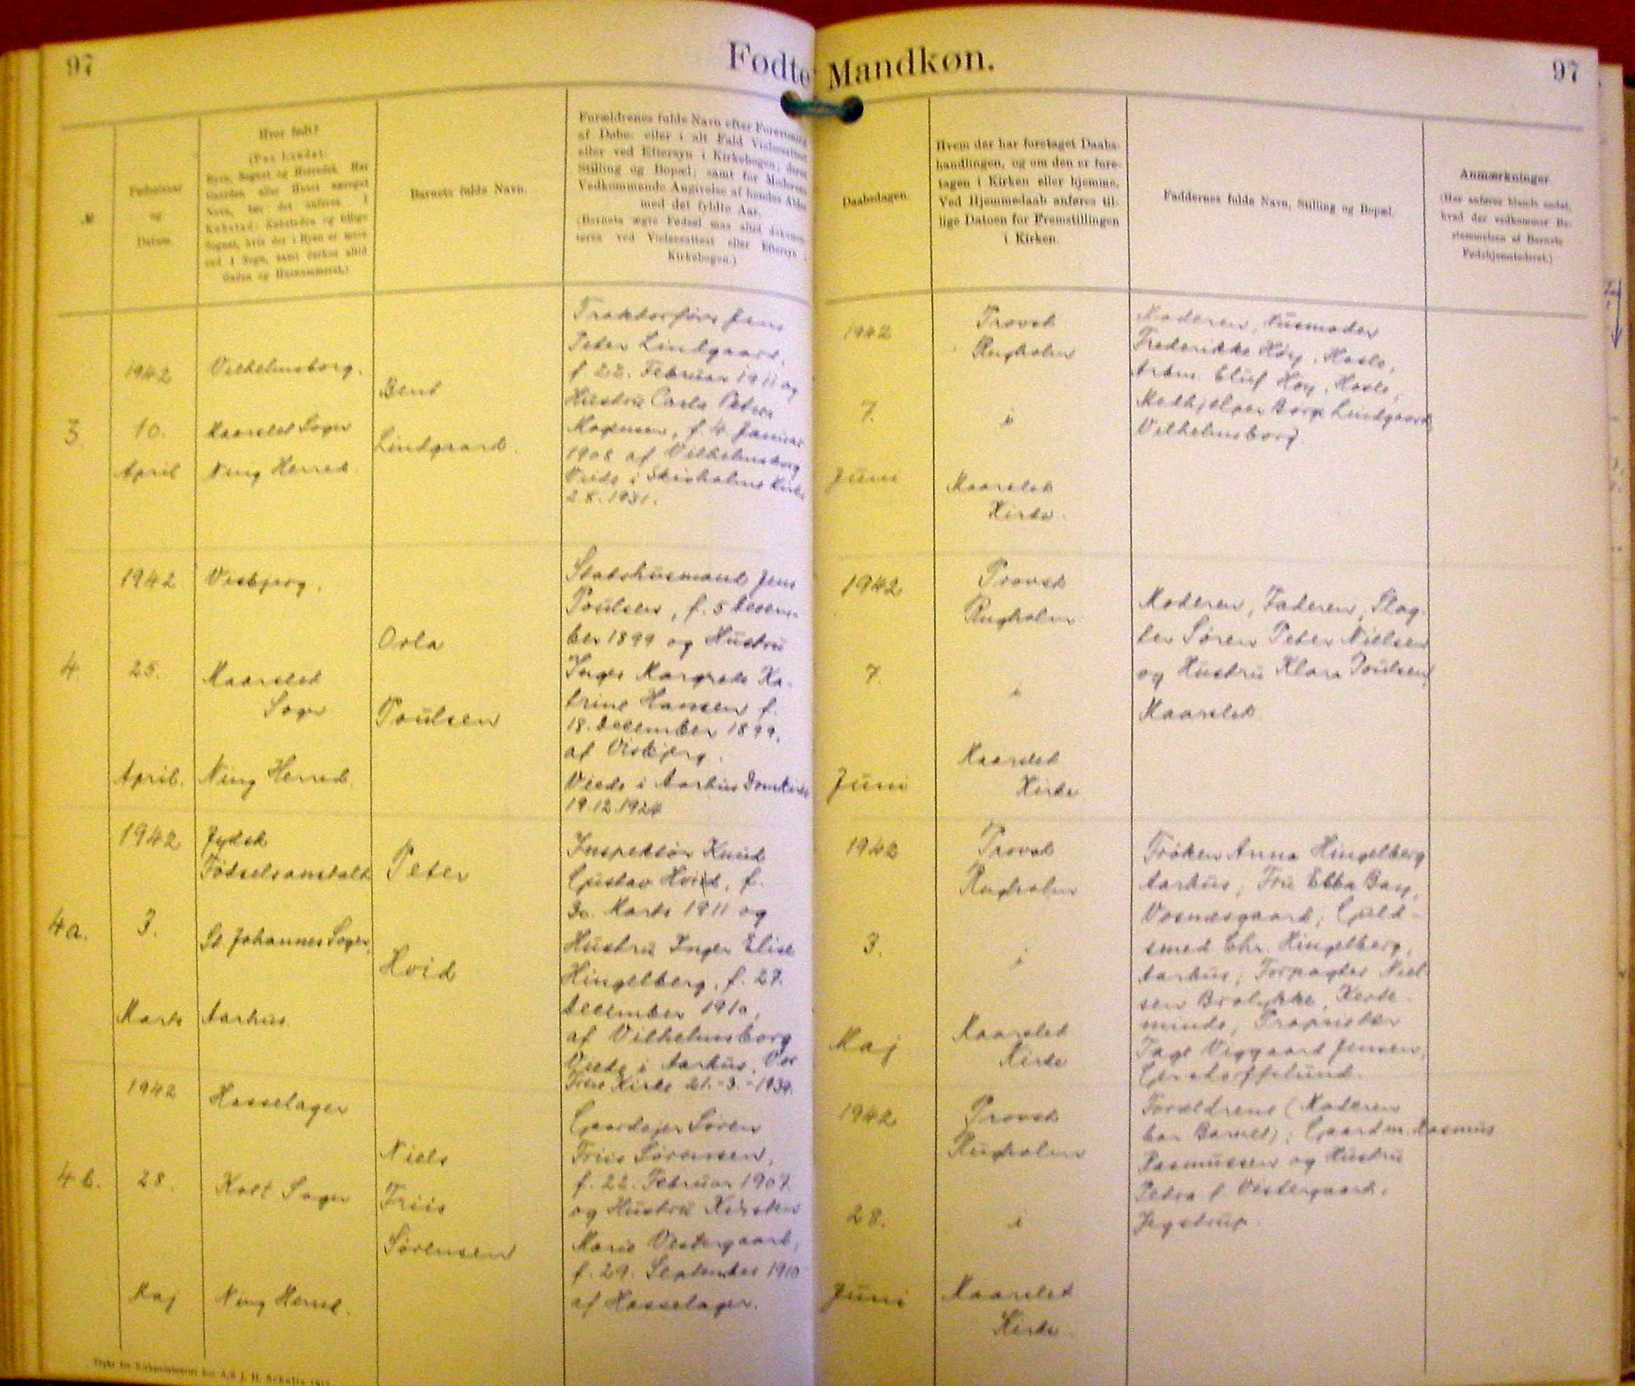 97
Fødte Mandkøn.
97
№
Fødselsaar
og
Datum.
Hvor født?
(Paa Landet:
Byen, Sognet og Herredet. Har
Gaarden eller Huset særeget
Navn, bør det anføres. I
Købstad: Købstaden og tillige
Sognet, hvis der i Byen er mere
end 1 Sogn, samt derhos altid
Gaden og Husnummeret.)
Barnets fulde Navn.
Forældrenes fulde Navn efter Forevisning
af Døbe- eller i alt Fald Vielsesattest
eller ved Eftersyn i Kirkebogen; deres
Stilling og Bopæl; samt for Moderens
Vedkommende Angivelse af hendes Alder
med det fyldte Aar.
(Barnets ægte Fødsel maa altid dokumen-
teres ved Vielsesattest eller Eftersyn i
Kirkebogen.)
Daabsdagen.
Hvem der har foretaget Daabs-
handlingen, og om den er fore-
tagen i Kirken eller hjemme.
Ved Hjemmedaab anføres til-
lige Datoen for Fremstillingen
i Kirken.
Faddernes fulde Navn, Stilling og Bopæl.
Anmærkninger
(Her anføres blandt andet,
hvad der vedkommer Be-
stemmelsen af Barnets
Fødehjemstederet.)
3
1942
10.
April
Vilhelmsborg.
Maarslet Sogn
Ning Herred.
Bent
Lindgaard.
Traktorfører Jens
Peter Lindgaard,
f 22. Februar 1911 og
Hustru Carla Petrea
Mogensen, f. 4. Januar
1908 af Vilhelmsborg
Viede i Skivholme Kirke
2.8.1931.
1942
7.
Juni
Provst
Rugholm
i
Maarslet
Kirke.
Moderen, Husmoder
Frederikke Høy, Hasle,
Arbm. Eluf Høy, Hasle,
Medhjælper Børge Lindgaard
Vilhelmsborg.
4
1942
25.
April.
Visbjerg.
Maarslet
Sogn
Ning Herred.
Orla
Poulsen
Statshusmand Jens
Poulsen, f. 5 decem-
ber 1899 og Hustru
Inger Margrete Ka-
trine Hansen f.
18. december 1899,
af Visbjerg.
Viede i Aarhus Domkirke
19.12.1924
1942
7.
Juni
Provst
Rugholm
i
Maarslet
Kirke
Moderen, Faderen, Slag-
ter Søren Peter Nielsen
og Hustru Klara Poulsen,
Maarslet.
4a.
1942
3.
Marts
Jydsk
Fødselsanstalt
St. Johannes Sogn,
Aarhus
Peter
Hvid
Inspektør Knud
Gustav Hvid, f.
30. Marts 1911 og
Hustru Inger Elise
Hingelberg, f. 27.
december 1910,
af Vilhelmsborg
Viede i Aarhus, Vor
Frue Kirke 21.-3.-1939.
1942
3.
Maj
Provst
Rugholm
i
Maarslet
Kirke
Frøken Anna Hingelberg
Aarhus, Fru Ebba Bay,
Vosnæsgaard, Guld-
smed Chr. Hingelberg,
Aarhus, Forpagter Niel-
sen Brolykke, Kerte-
minde, Proprietær
Tage Viggaard Jensen,
Gersdorffslund.
4b.
1942
28.
Maj
Hasselager
Kolt Sogn
Ning Herred.
Niels
Friis
Sørensen
Gaardejer Søren
Friis Sørensen,
f. 22. Februar 1907.
og Hustru Kirsten
Marie Vestergaard,
f. 29. September 1910
af Hasselager.
1942
28.
Juni
Provst
Rugholm
i
Maarslet
Kirke.
Forældrene (Moderen
bar Barnet); Gaardm. Rasmus
Rasmussen og Hustru
Petra f. Vestergaard,
Jegstrup.